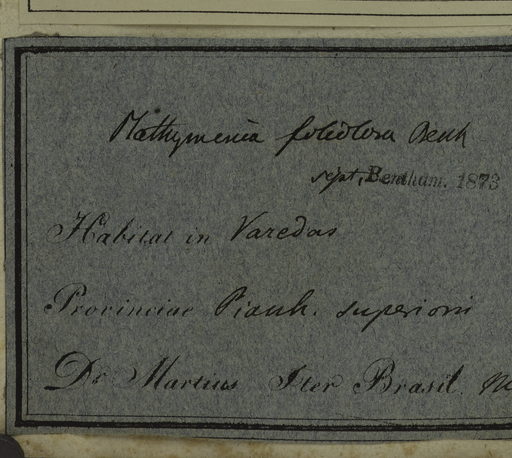 Plathymenia foliolosa Benth
sept, Bentham. 1873
Habitat in Varedas
Provinciae Piauh. superioris
Dr Martius Iter Brasil.